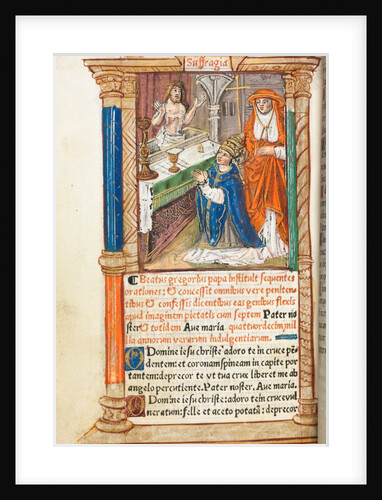 Suffragia
Beatus gregorius papa instituit sequentes
orationes: & concessit omnibus vere peniten
tibus & confessis dicentibus eas genibus flexis
quod imaginem pietatis cum septem Pater no
ster & totidem Ave maria quattuordecim mil
lia annorum verarum indulgentiarum.
O Domine iesu christe adoro te in cruce pē
dentem: et coronam spineam in capite por
tantem: deprecor te vt tua crux liberet me ab
angelo percutiente. Pater noster. Ave maria.
O Domine iesu christe: adoro te in cruce vul
neratum: felle et aceto potatū: deprecor